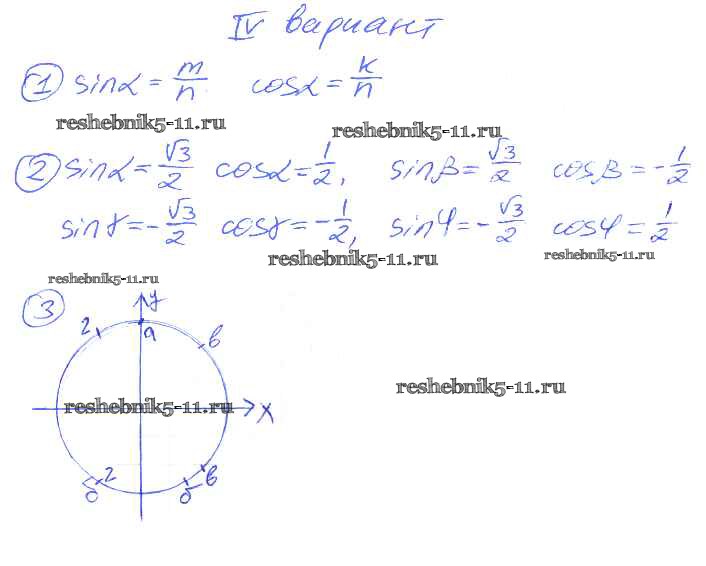 IV вариант
1 sinα = m/n cosα = k/n
reshebnik5-11.ru reshebnik5-11.ru
2 sinα = √3/2 cosα = 1/2, sinβ = √3/2 cosβ = -1/2
sinγ = -√3/2 cosγ = -1/2, sinφ = -√3/2 cosφ = 1/2
reshebnik5-11.ru reshebnik5-11.ru
reshebnik5-11.ru
3
y
г а в
reshebnik5-11.ru
reshebnik5-11.ru x
г в
б б